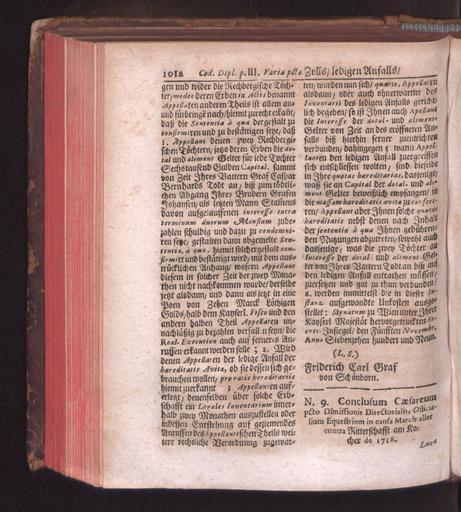 1012 Cod. Dipl. p. III. Varia pcto Zolls/ ledigen Anfalls/
gen und wider die Rechbergische Töch-
ter/ modo deren Erben in Actis benannt
Appellaten anderen Theils ist allem an-
und fürbringe nach/ hiemit zurecht erkant/
daß die Sententia à quâ dergestalt zu
confirmiren und zu bestättigen seye/ daß
1. Appellant denen zwey Rechbergi-
schen Töchtern/ jetzo deren Erben die do-
tal und aliment Gelter für jede Tochter
Sechstausend Gulden Capital, sammt
von Zeit Ihres Vattern Graf Caspar
Bernhards Todt an/ biß zum tödtli-
chen Abgang Ihres Brudern Grafen
Johansen/ als letzten Mann Stammens
davon aufgelauffenen interesse intra
terminum duorum Mensium zube-
zahlen schuldig und dazu zu condemni-
ren seye/ gestalten dann obgemelte Sen-
tentia, à qua, hiemit solchergestalt con-
firmirt und bestättigt wird/ mit dem auß-
drücklichen Anhang/ wofern Appellant
diesem in solcher Zeit der zwey Mona-
then nicht nachkommen wurde/ derselbe
jetzt alsdann/ und dann als jetzt in eine
Poen von Zehen Marck löthigen
Golds/ halb dem Kayserl. Fisco und den
andern halben Theil Appellaten un-
nachläßig zu bezahlen verfallen seyn/ die
Real Execution auch auf ferners An-
ruffen erkannt werden solle; 2. Wird
denen Appellaten der ledige Anfall der
hereditatis Avita, ob sie dessen sich ge-
brauchen wollen/ pro ratis hereditariis
hiemit zuerkannt. 3. Appellanten auf-
erlegt/ denenselben über solche Erb-
schafft ein Legales Inventarium inner-
halb zwey Monathen auszustellen oder
in dessen Entstehung auf geziemendes
Anruffen des Appellantischen Theils wei-
tere rechtliche Verordnung zugewar-
ten/ würden nun sich/ quartò, Appellaten
alsdann/ oder auch ohnerwartet des
Inventarii des ledigen Anfalls gericht-
lich begeben/ so ist Ihnen auch Appellant
die Interesse der dotal- und aliment-
Gelter von Zeit an des eröffneten An-
falls biß hierhin ferner zuentrichten
verbunden/ dahingegen 5. wann Appel-
laten den ledigen Anfall zuergreiffen
sich entschliessen wolten/ sind dieselbe
in Ihre quotas hereditarias, dasjenige/
was sie an Capital der dotal- und ali-
ment Gelter beweißlich empfangen/ in
die massam hereditatis avitæ zu confe-
riren/ Appellant aber Ihnen solche quotas
hereditatis nebst denen nach Inhalt
der sententia à quâ Ihnen gebühren-
den Nutzungen abzutretten/ sowohl auch
dasjenige/ was die zwey Töchter an
Interesse der dotal- und aliment Gel-
ter von Ihres Vattern Todt an biß auf
den ledigen Anfall entrathen müssen/
zuersetzen und gut zu thun verbunden/
6. werden immittelst die in dieser In-
stanz aufgewandte Unkosten ausge-
stellet; Signatum zu Wien unter Ihrer
Kayserl. Majestät hervorgetruckten Se-
cret-Insiegel/ den Fünfften Novembr.
Anno Siebenzehen hundert und Neun.
(L. S.)
Friderich Carl Graf
von Schönborn.
N. 9. Conclusum Cæsareum
pcto Dimissionis Directorialis, Officia-
lium Equestrium in causa Marchtaller
contra Ritterschafft am Ko-
cher de 1718.